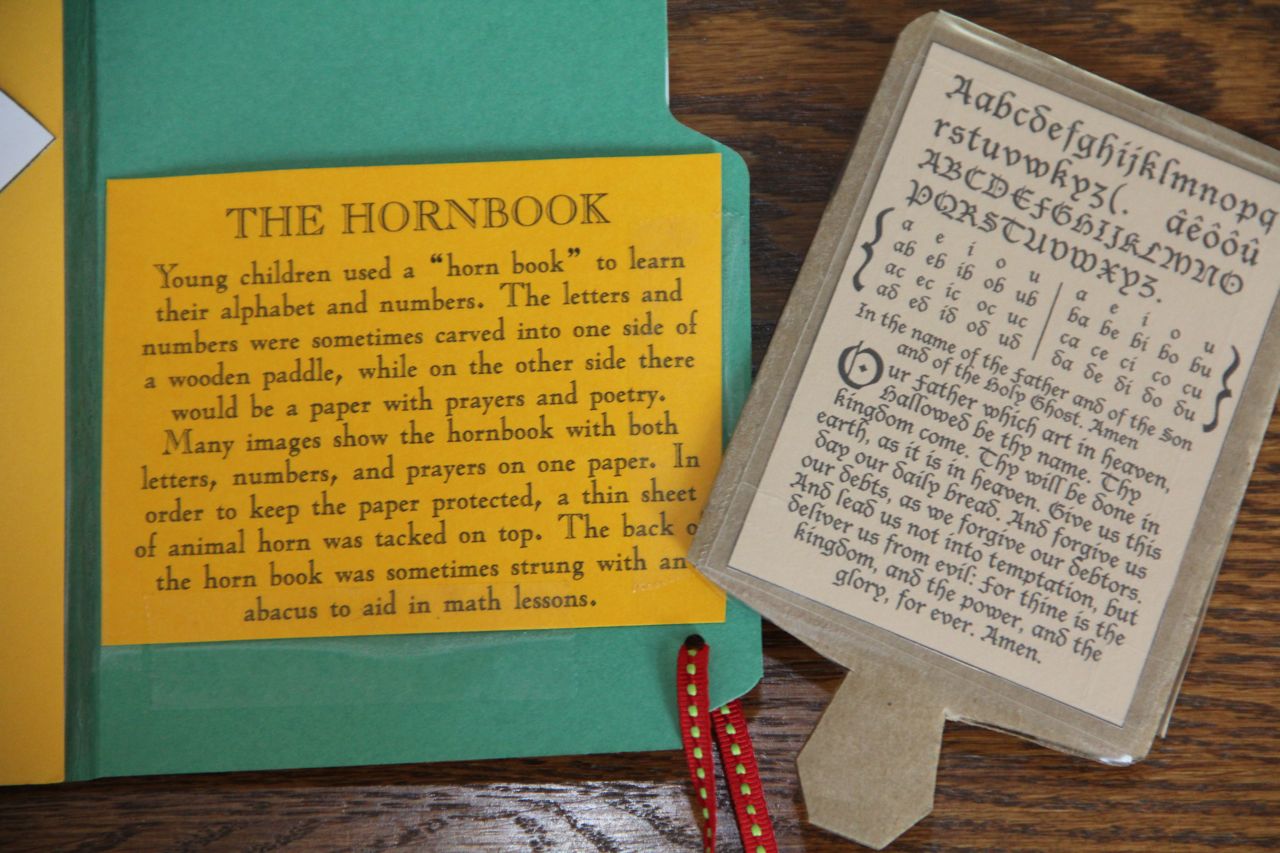 THE HORNBOOK
Young children used a “horn book” to learn
their alphabet and numbers. The letters and
numbers were sometimes carved into one side of
a wooden paddle, while on the other side there
would be a paper with prayers and poetry.
Many images show the hornbook with both
letters, numbers, and prayers on one paper. In
order to keep the paper protected, a thin sheet
of animal horn was tacked on top. The back o
the horn book was sometimes strung with an
abacus to aid in math lessons.
Aabcdefghijklmnopq
rstuvwkyz(. âêôôû
ABCDEfGHIJKLMNO
PQRSTUVWXYZ.
{ a e i o u | a e i o u }
ab eb ib ob ub | ba be bi bo bu
ac ec ic oc uc | ca ce ci co cu
ad ed id od ud | da de di do du
In the name of the father and of the Son
and of the Holy Ghost. Amen
Our father which art in heaven,
Hallowed be thy name. Thy
kingdom come. Thy will be done in
earth, as it is in heaven. Give us this
day our daily bread. And forgive us
our debts, as we forgive our debtors.
And lead us not into temptation, but
deliver us from evil: For thine is the
kingdom, and the power, and the
glory, for ever. Amen.